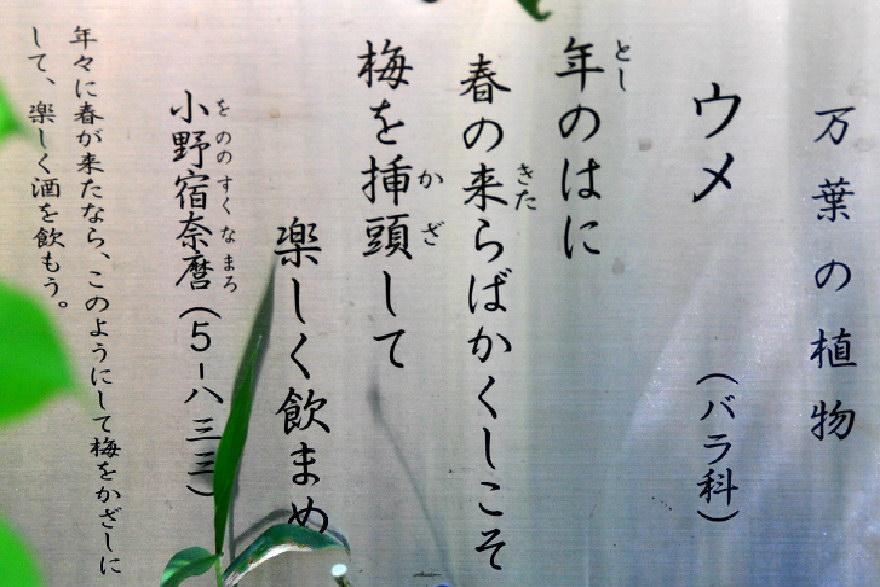 万葉の植物
ウメ (バラ科)
年のはに
春の来らばかくしこそ
梅を挿頭して
楽しく飲まめ
小野宿奈麿(5-八三三)
年々に春が来たなら、このようにして梅をかざしに
して、楽しく酒を飲もう。
とし
きた
かざ
をののすくなまろ